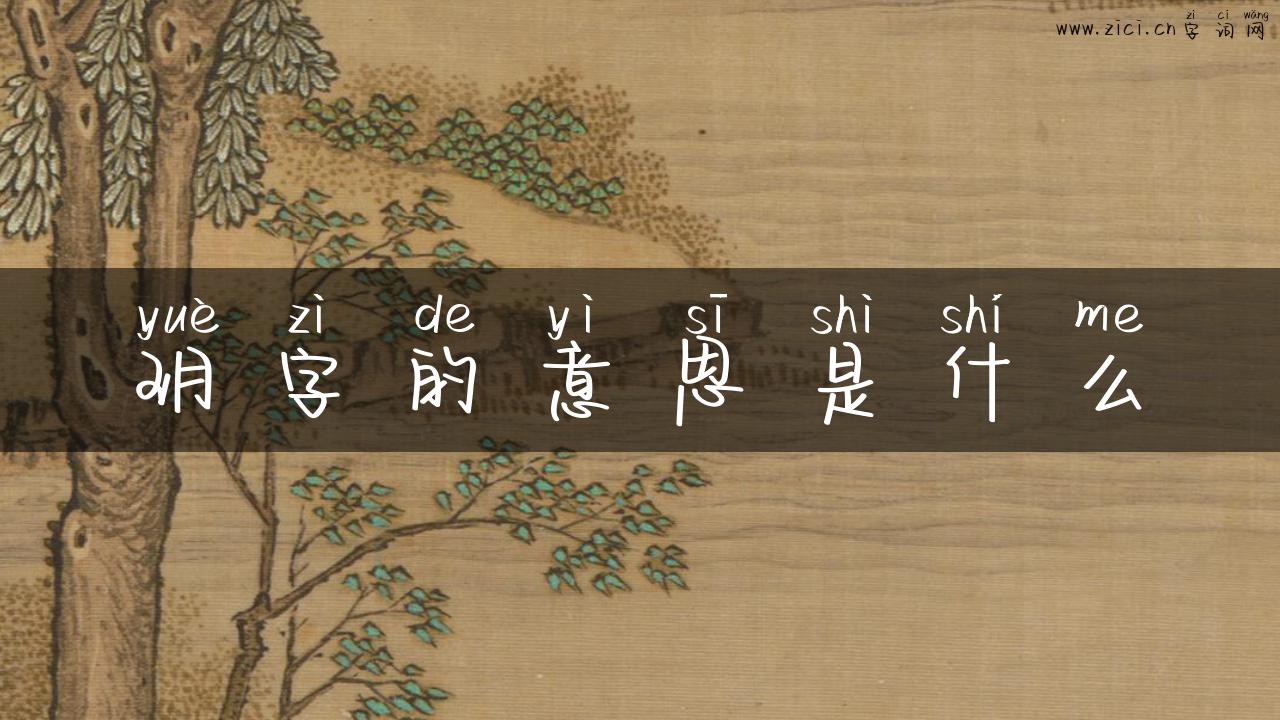 zì cí wǎng
www.zici.cn 字词网
yuè zì de yì sī shì shí me
玥字的意思是什么